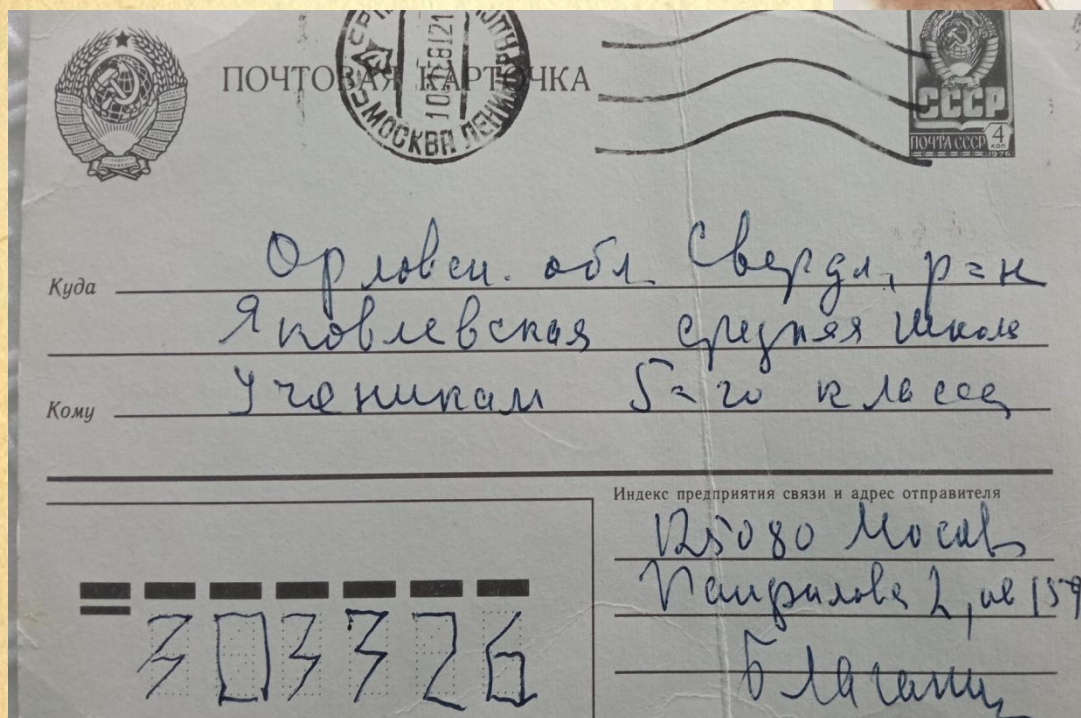 ПОЧТОВАЯ КАРТОЧКА
МОСКВА
СССР
ПОЧТА СССР 4
КОП
1976
Куда Орловск. обл Свердл, р=н
Яковлевская средняя школа
Кому Ученикам 5=го класса
Индекс предприятия связи и адрес отправителя
125080 Москва
Панфилова 2, кв 159
303326